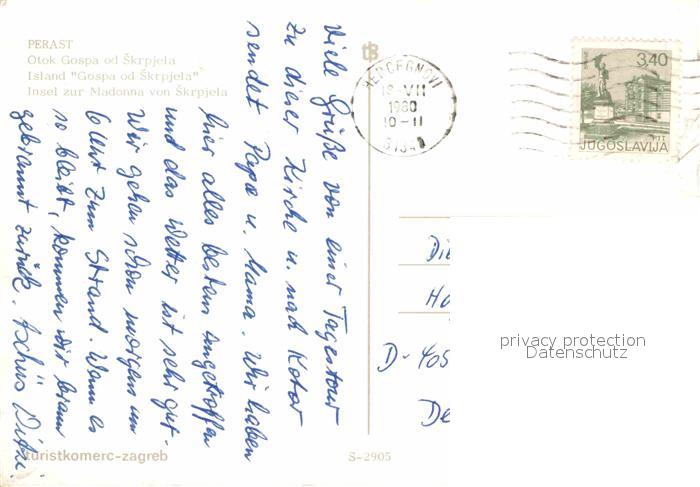 PERAST
Otok Gospa od Škrpjela
Island "Gospa od Škrpjela"
Insel zur Madonna von Škrpjela
tB
HERCEGNOVI
18-VII
1980
10-11
3,40
JUGOSLAVIJA
Viele Grüße von einer Tagestour
zu dieser Kirche u. nach Kotor
sendet Papa u. Mama. Wir haben
hier alles bestens angetroffen
und das Wetter ist sehr gut.
Wir gehen schon morgens um
6 Uhr zum Strand. Wenn es
so bleibt, kommen wir braun
gebrannt zurück. Tschüs
Di
D-405
De
privacy protection
Datenschutz
turistkomerc-zagreb
S-2905